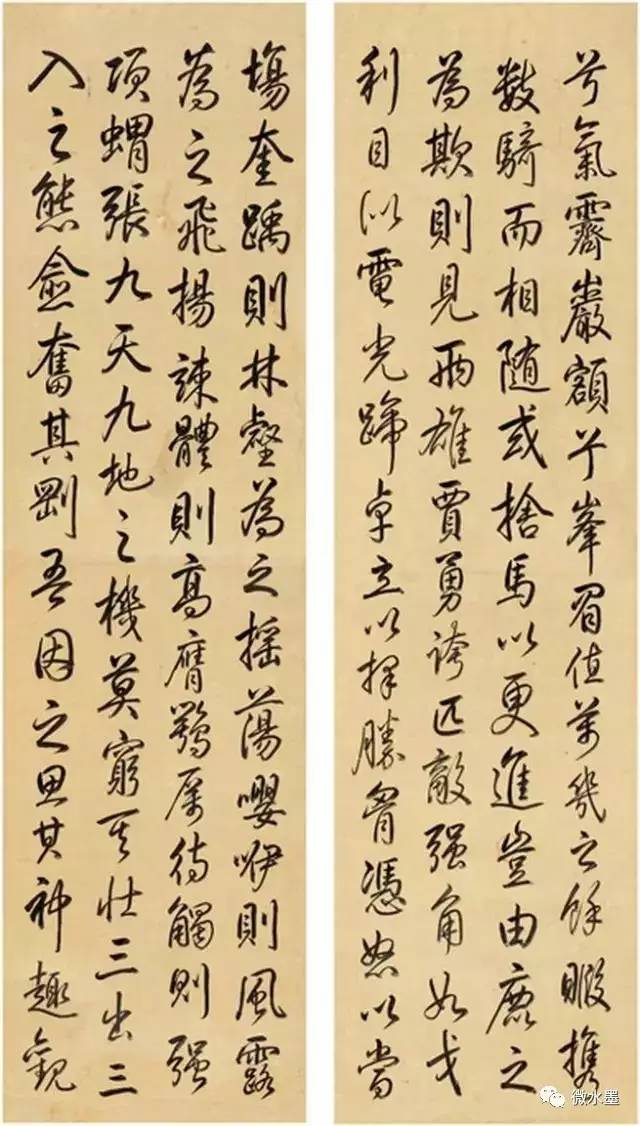 兮氣霽巖額兮峯眉值萬幾之餘暇攜
數騎而相隨或捨馬以更進豈由鹿之
為欺則見兩雄賈勇誇匹敵强角如戈
利目似電光蹄卓立以擇勝胷憑怒以當
場奎踽則林壑為之搖蕩嚶咿則風露
為之飛揚竦體則高膺鶚厲待觸則强
項蝟張九天九地之機莫窮其壯三出三
入之態僉奮其剛吾因之思其神趣觀
微水墨